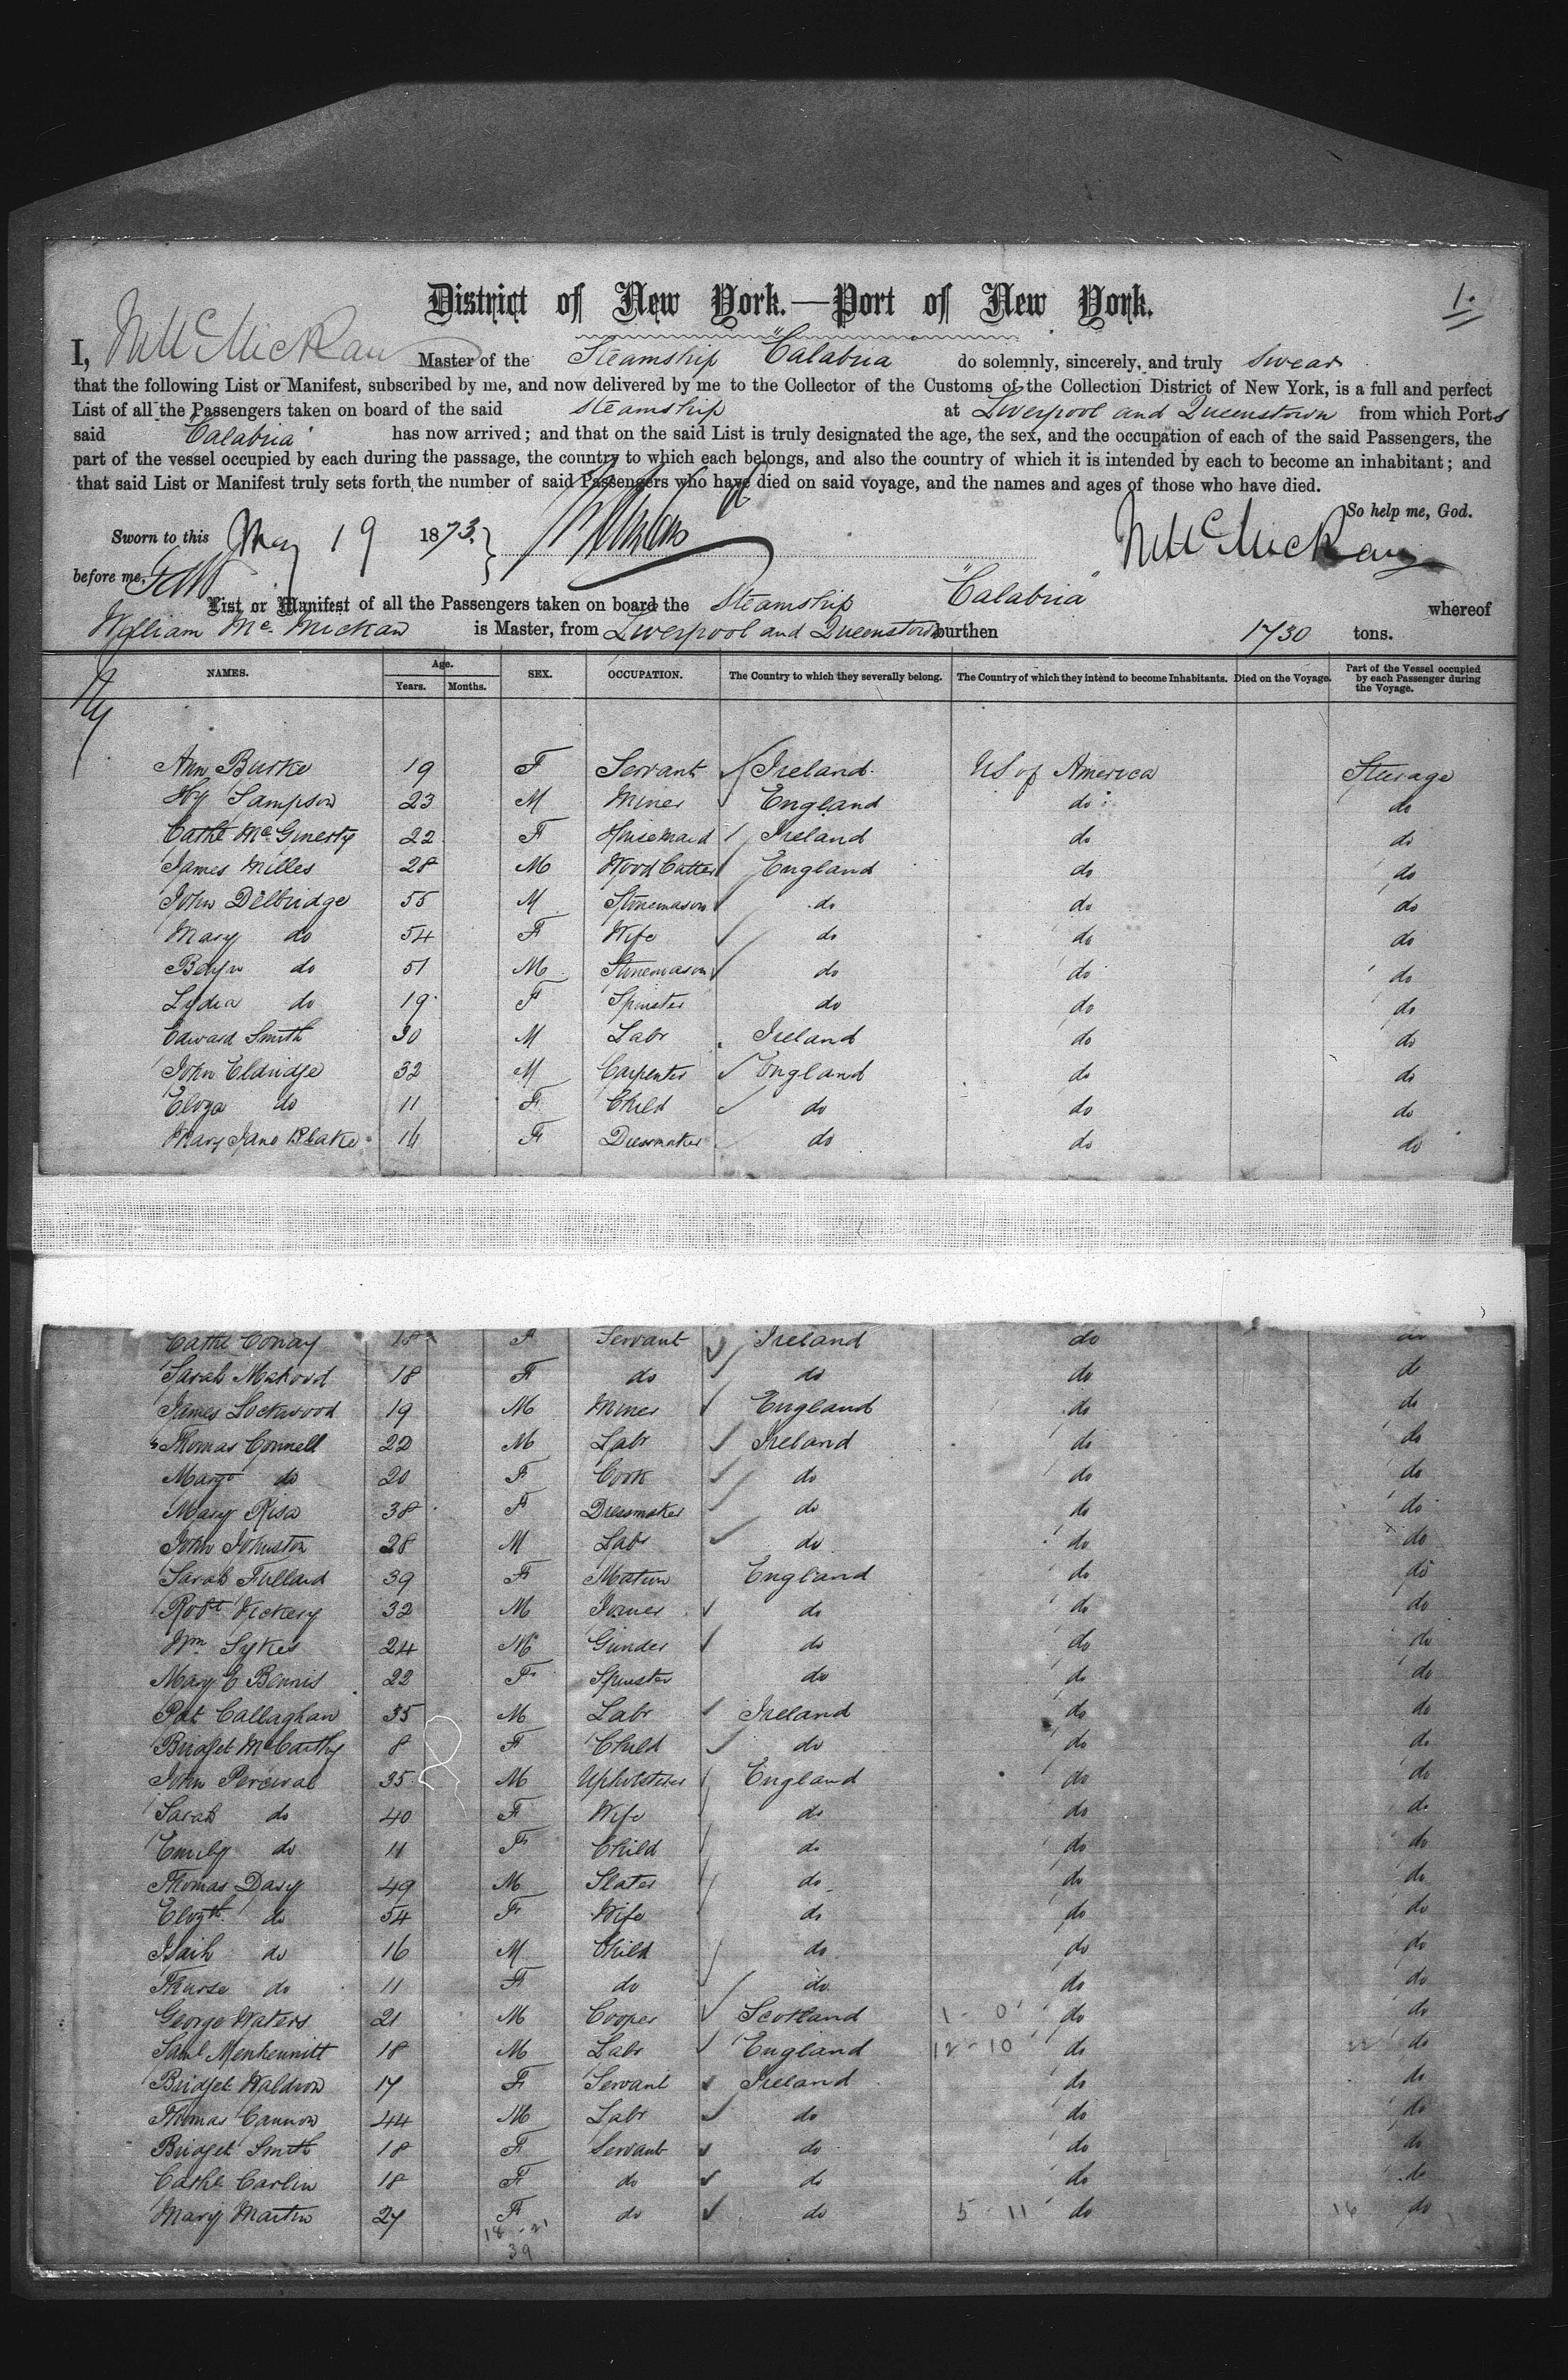 District of New York.—Port of New York.
1.
I, Wm McMickan Master of the Steamship "Calabria do solemnly, sincerely, and truly swear
that the following List or Manifest, subscribed by me, and now delivered by me to the Collector of the Customs of the Collection District of New York, is a full and perfect
List of all the Passengers taken on board of the said Steamship at Liverpool and Queenstown from which Ports
said "Calabria" has now arrived; and that on the said List is truly designated the age, the sex, and the occupation of each of the said Passengers, the
part of the vessel occupied by each during the passage, the country to which each belongs, and also the country of which it is intended by each to become an inhabitant; and
that said List or Manifest truly sets forth the number of said Passengers who have died on said voyage, and the names and ages of those who have died.
So help me, God.
Sworn to this May 19 1873. Wm McMickan
before me,
List or Manifest of all the Passengers taken on board the Steamship "Calabria" whereof
William Mc. Mickan is Master, from Liverpool and Queenstown burthen 1730 tons.
NAMES. Age. Years. Months. SEX. OCCUPATION. The Country to which they severally belong. The Country of which they intend to become Inhabitants. Died on the Voyage. Part of the Vessel occupied by each Passenger during the Voyage.
Ann Burke 19 F Servant Ireland US of America Steerage
Hy Sampson 23 M Miner England do do
Cathe McGinerty 22 F Housemaid Ireland do do
James Milles 28 M Wood Cutter England do do
John Delbridge 55 M Stonemason do do do
Mary do 54 F Wife do do do
Benjn do 51 M Stonemason do do do
Lydia do 19 F Spinster do do do
Edward Smith 30 M Labr Ireland do do
John Eldridge 32 M Carpenter England do do
Eliza do 11 F Child do do do
Mary Jane Blake 16 F Dressmaker do do do
Cathe Conay 18 F Servant Ireland do do
Sarah Makood 18 F do do do do
James Lockwood 19 M Miner England do do
Thomas Connell 22 M Labr Ireland do do
Margt do 20 F Cook do do do
Mary Risa 38 F Dressmaker do do do
John Johnston 28 M Labr do do do
Sarah Fullard 39 F Matron England do do
Robt Vickery 32 M Joiner do do do
Wm Sykes 24 M Grinder do do do
Mary E Bennis 22 F Spinster do do do
Pat Callaghan 35 M Labr Ireland do do
Bridget McCarthy 8 F Child do do do
John Percival 35 M Upholsterer England do do
Sarah do 40 F Wife do do do
Emily do 11 F Child do do do
Thomas Davy 49 M Slater do do do
Elizth do 54 F Wife do do do
Isaih do 16 M Child do do do
Thurse do 11 F do do do do
George Waters 21 M Cooper Scotland 1 - 0 do do
Saml Menhennitt 18 M Labr England 12 - 10 do 22 do
Bridget Waldron 17 F Servant Ireland do do
Thomas Cannon 44 M Labr do do do
Bridget Smith 18 F Servant do do do
Cathe Carlin 18 F do do do do
Mary Martin 27 F do do 5 - 11 do 16 do
18 - 21
39